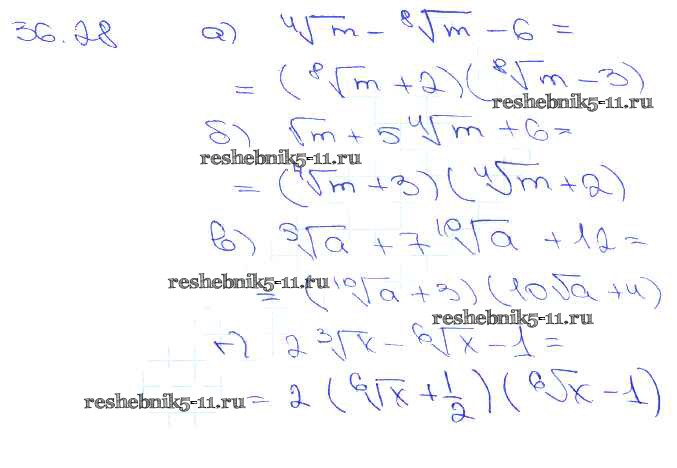 36.28 а) ⁴√m - ⁸√m - 6 =
= (⁸√m + 2)(⁸√m - 3)
reshebnik5-11.ru
б) √m + 5 ⁴√m + 6 =
reshebnik5-11.ru
= (⁴√m + 3)(⁴√m + 2)
в) ⁵√a + 7 ¹⁰√a + 12 =
reshebnik5-11.ru
= (¹⁰√a + 3)(10√a + 4)
reshebnik5-11.ru
г) 2 ³√x - ⁶√x - 1 =
reshebnik5-11.ru = 2 (⁶√x + 1/2)(⁶√x - 1)